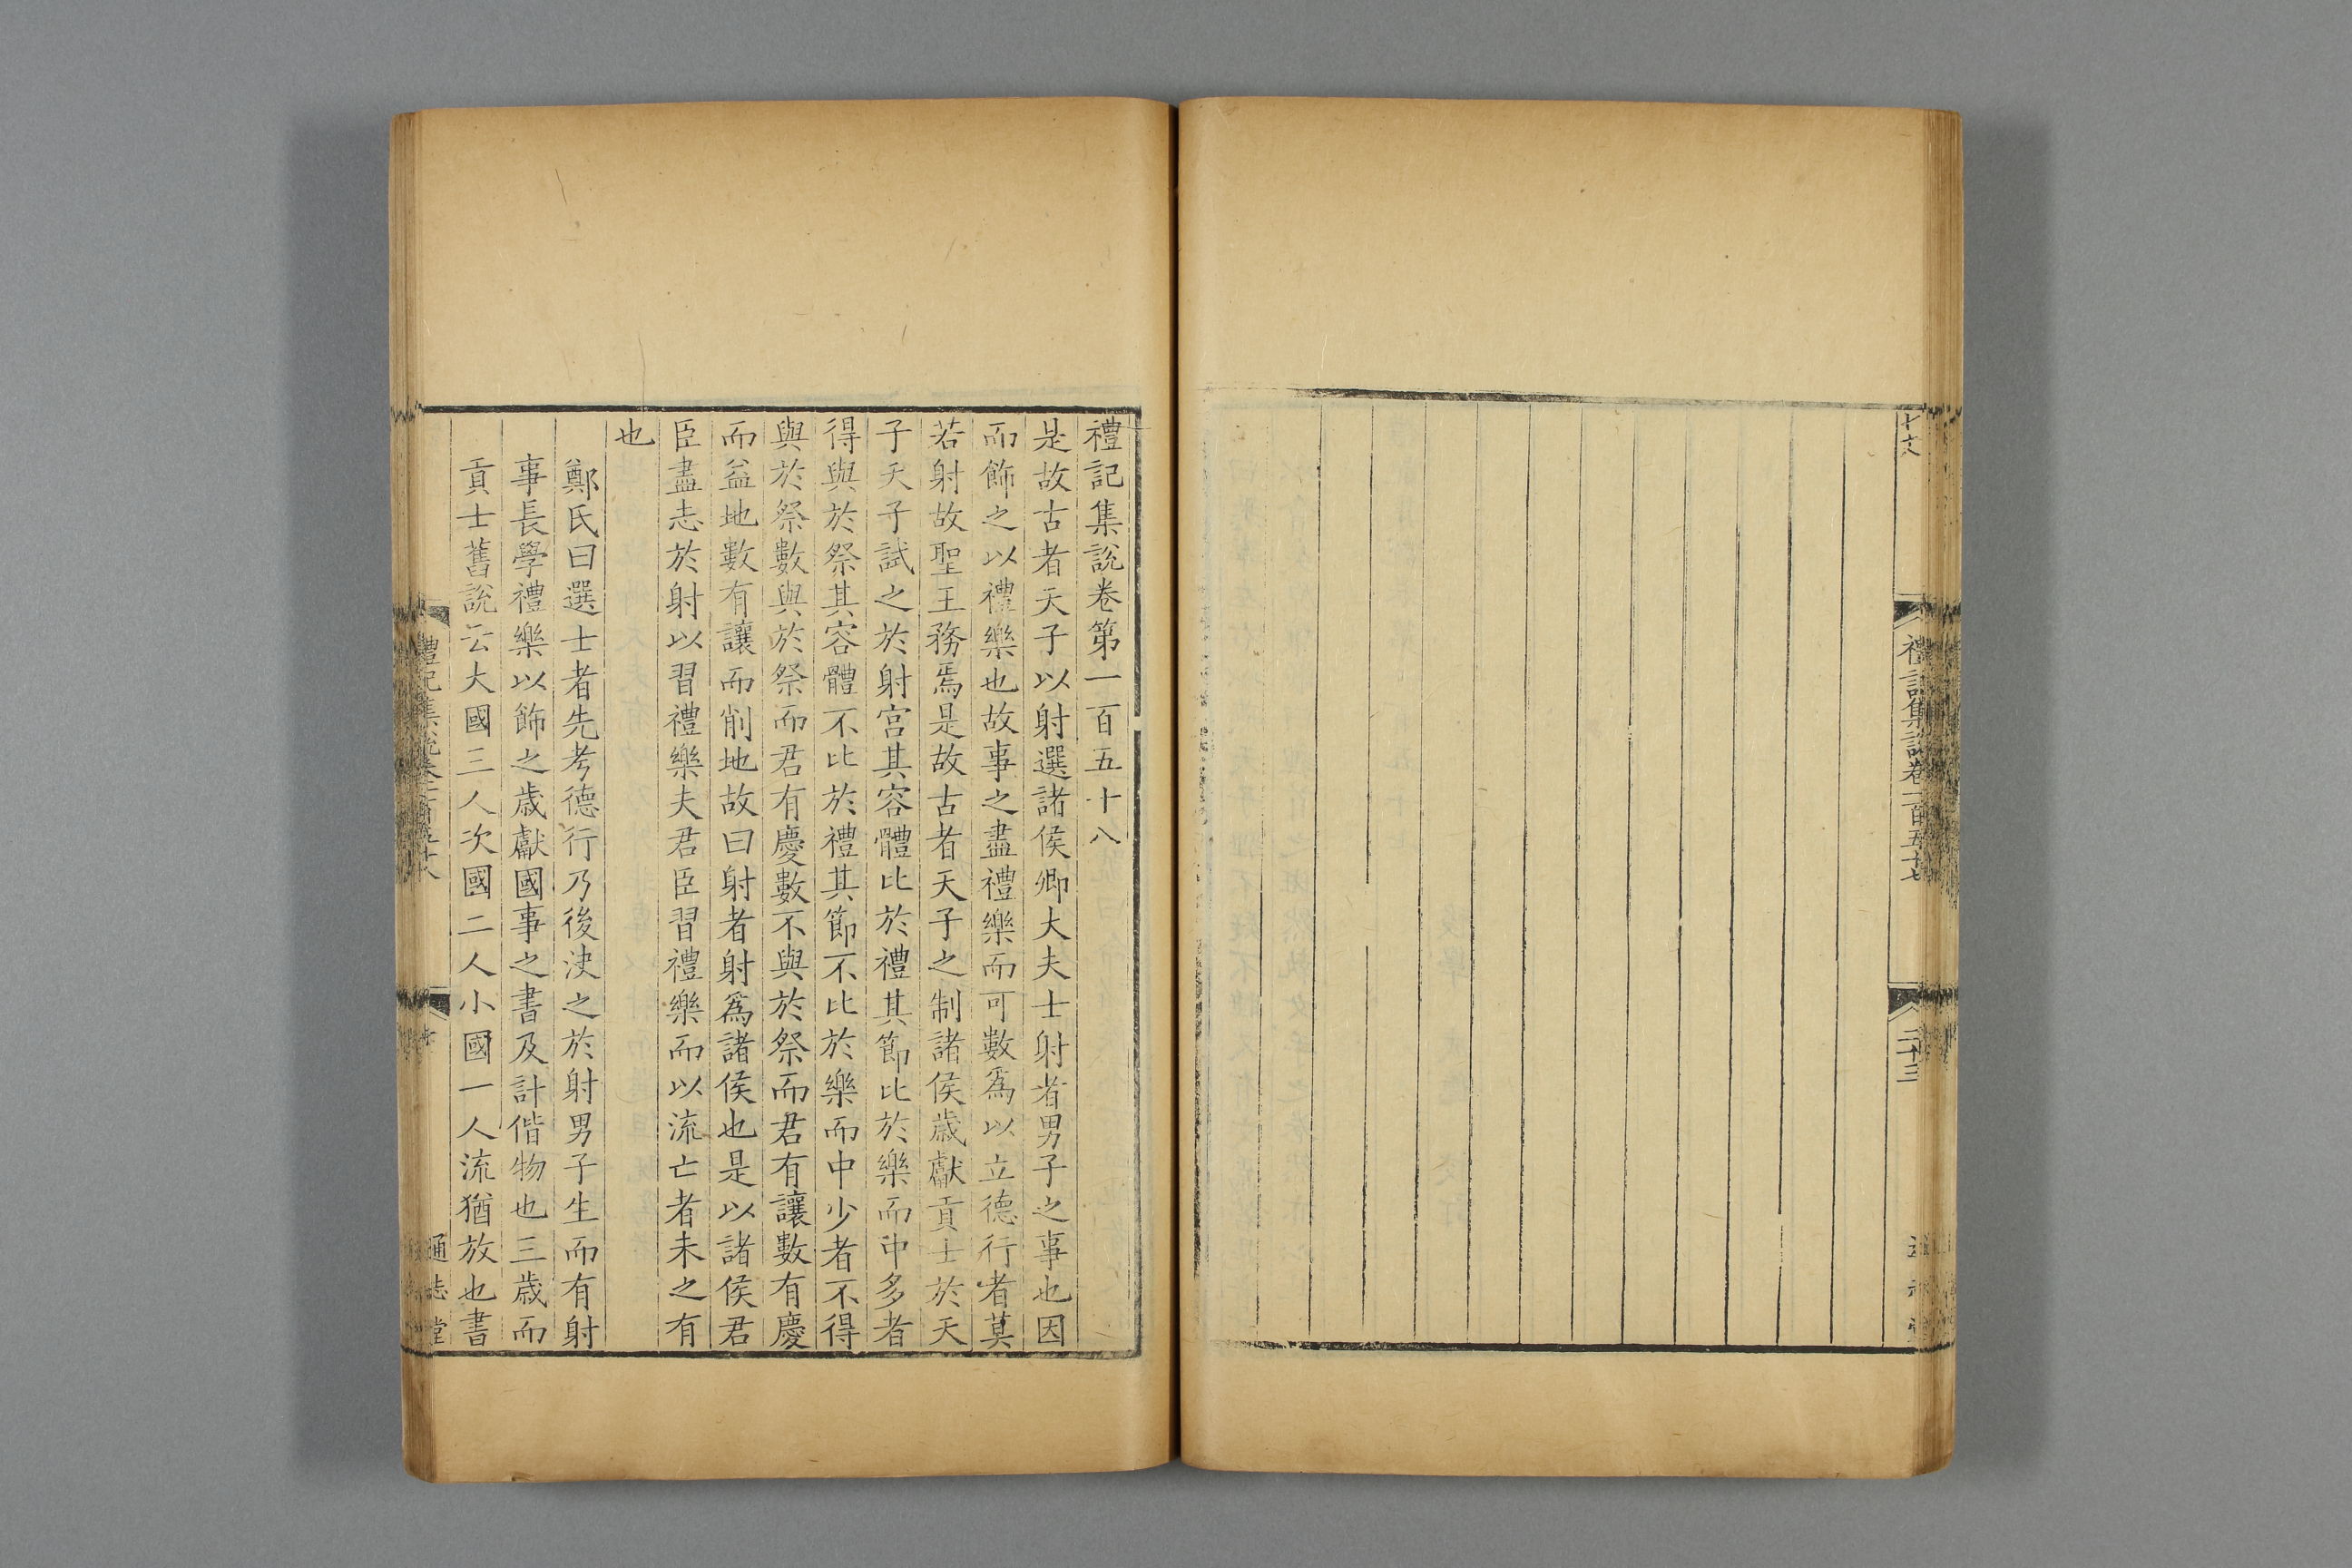 禮記集說卷一百五十七
二十三
禮記集說卷第一百五十八
是故古者天子以射選諸侯卿大夫士射者男子之事也因
而飾之以禮樂也故事之盡禮樂而可數爲以立德行者莫
若射故聖王務焉是故古者天子之制諸侯歲獻貢士於天
子天子試之於射宮其容體比於禮其節比於樂而中多者
得與於祭其容體不比於禮其節不比於樂而中少者不得
與於祭數與於祭而君有慶數不與於祭而君有讓數有慶
而益地數有讓而削地故曰射者射爲諸侯也是以諸侯君
臣盡志於射以習禮樂夫君臣習禮樂而以流亡者未之有
也
鄭氏曰選士者先考德行乃後決之於射男子生而有射
事長學禮樂以飾之歲獻國事之書及計偕物也三歲而
貢士舊說云大國三人次國二人小國一人流猶放也書
禮記集說卷一百五十八
通志堂